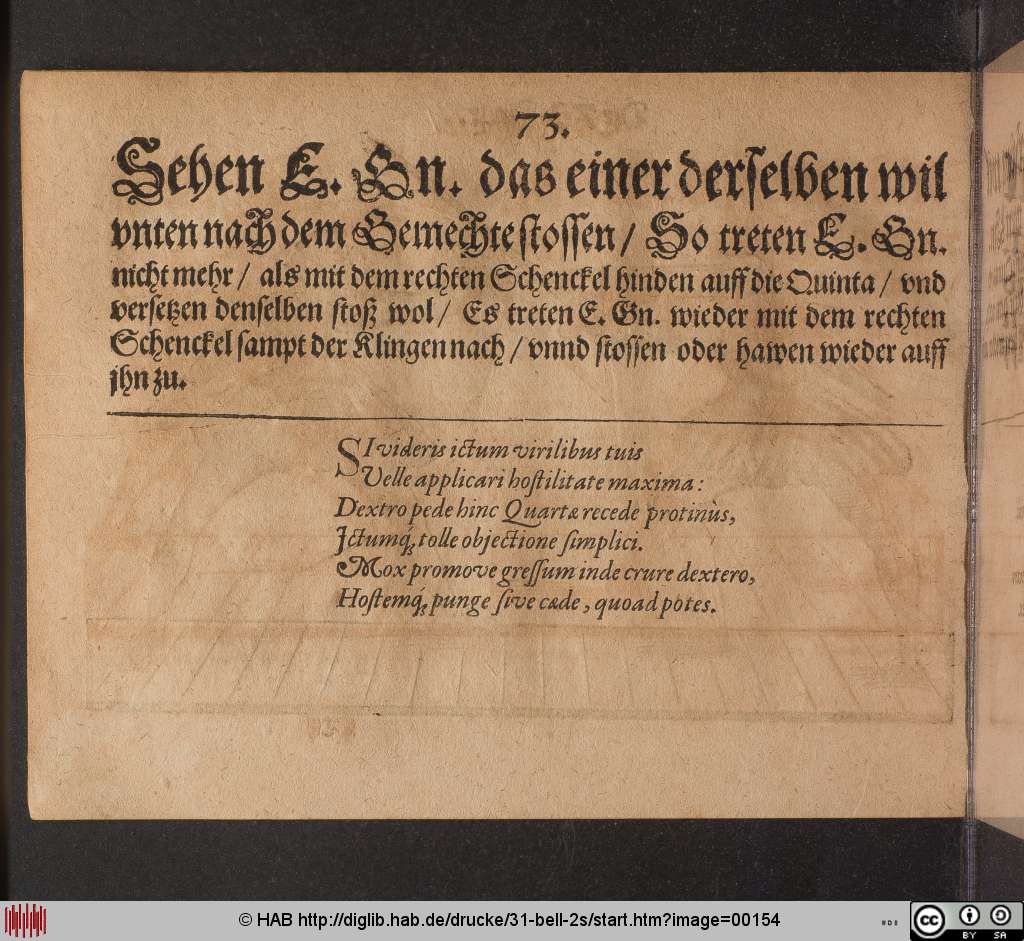 73.
Sehen E. Gn. das einer derselben wil
vnten nach dem Gemechte stossen / So treten E. Gn.
nicht mehr / als mit dem rechten Schenckel hinden auff die Quinta / vnd
versetzen denselben stoß wol / Es treten E. Gn. wieder mit dem rechten
Schenckel sampt der Klingen nach / vnnd stossen oder hawen wieder auff
jhn zu.
SI videris ictum virilibus tuis
Velle applicari hostilitate maxima:
Dextro pede hinc Quartæ recede protinùs,
Ictumq́; tolle objectione simplici.
Mox promove gressum inde crure dextero,
Hostemq́; punge sive cæde, quoad potes.
© HAB http://diglib.hab.de/drucke/31-bell-2s/start.htm?image=00154
cc BY SA